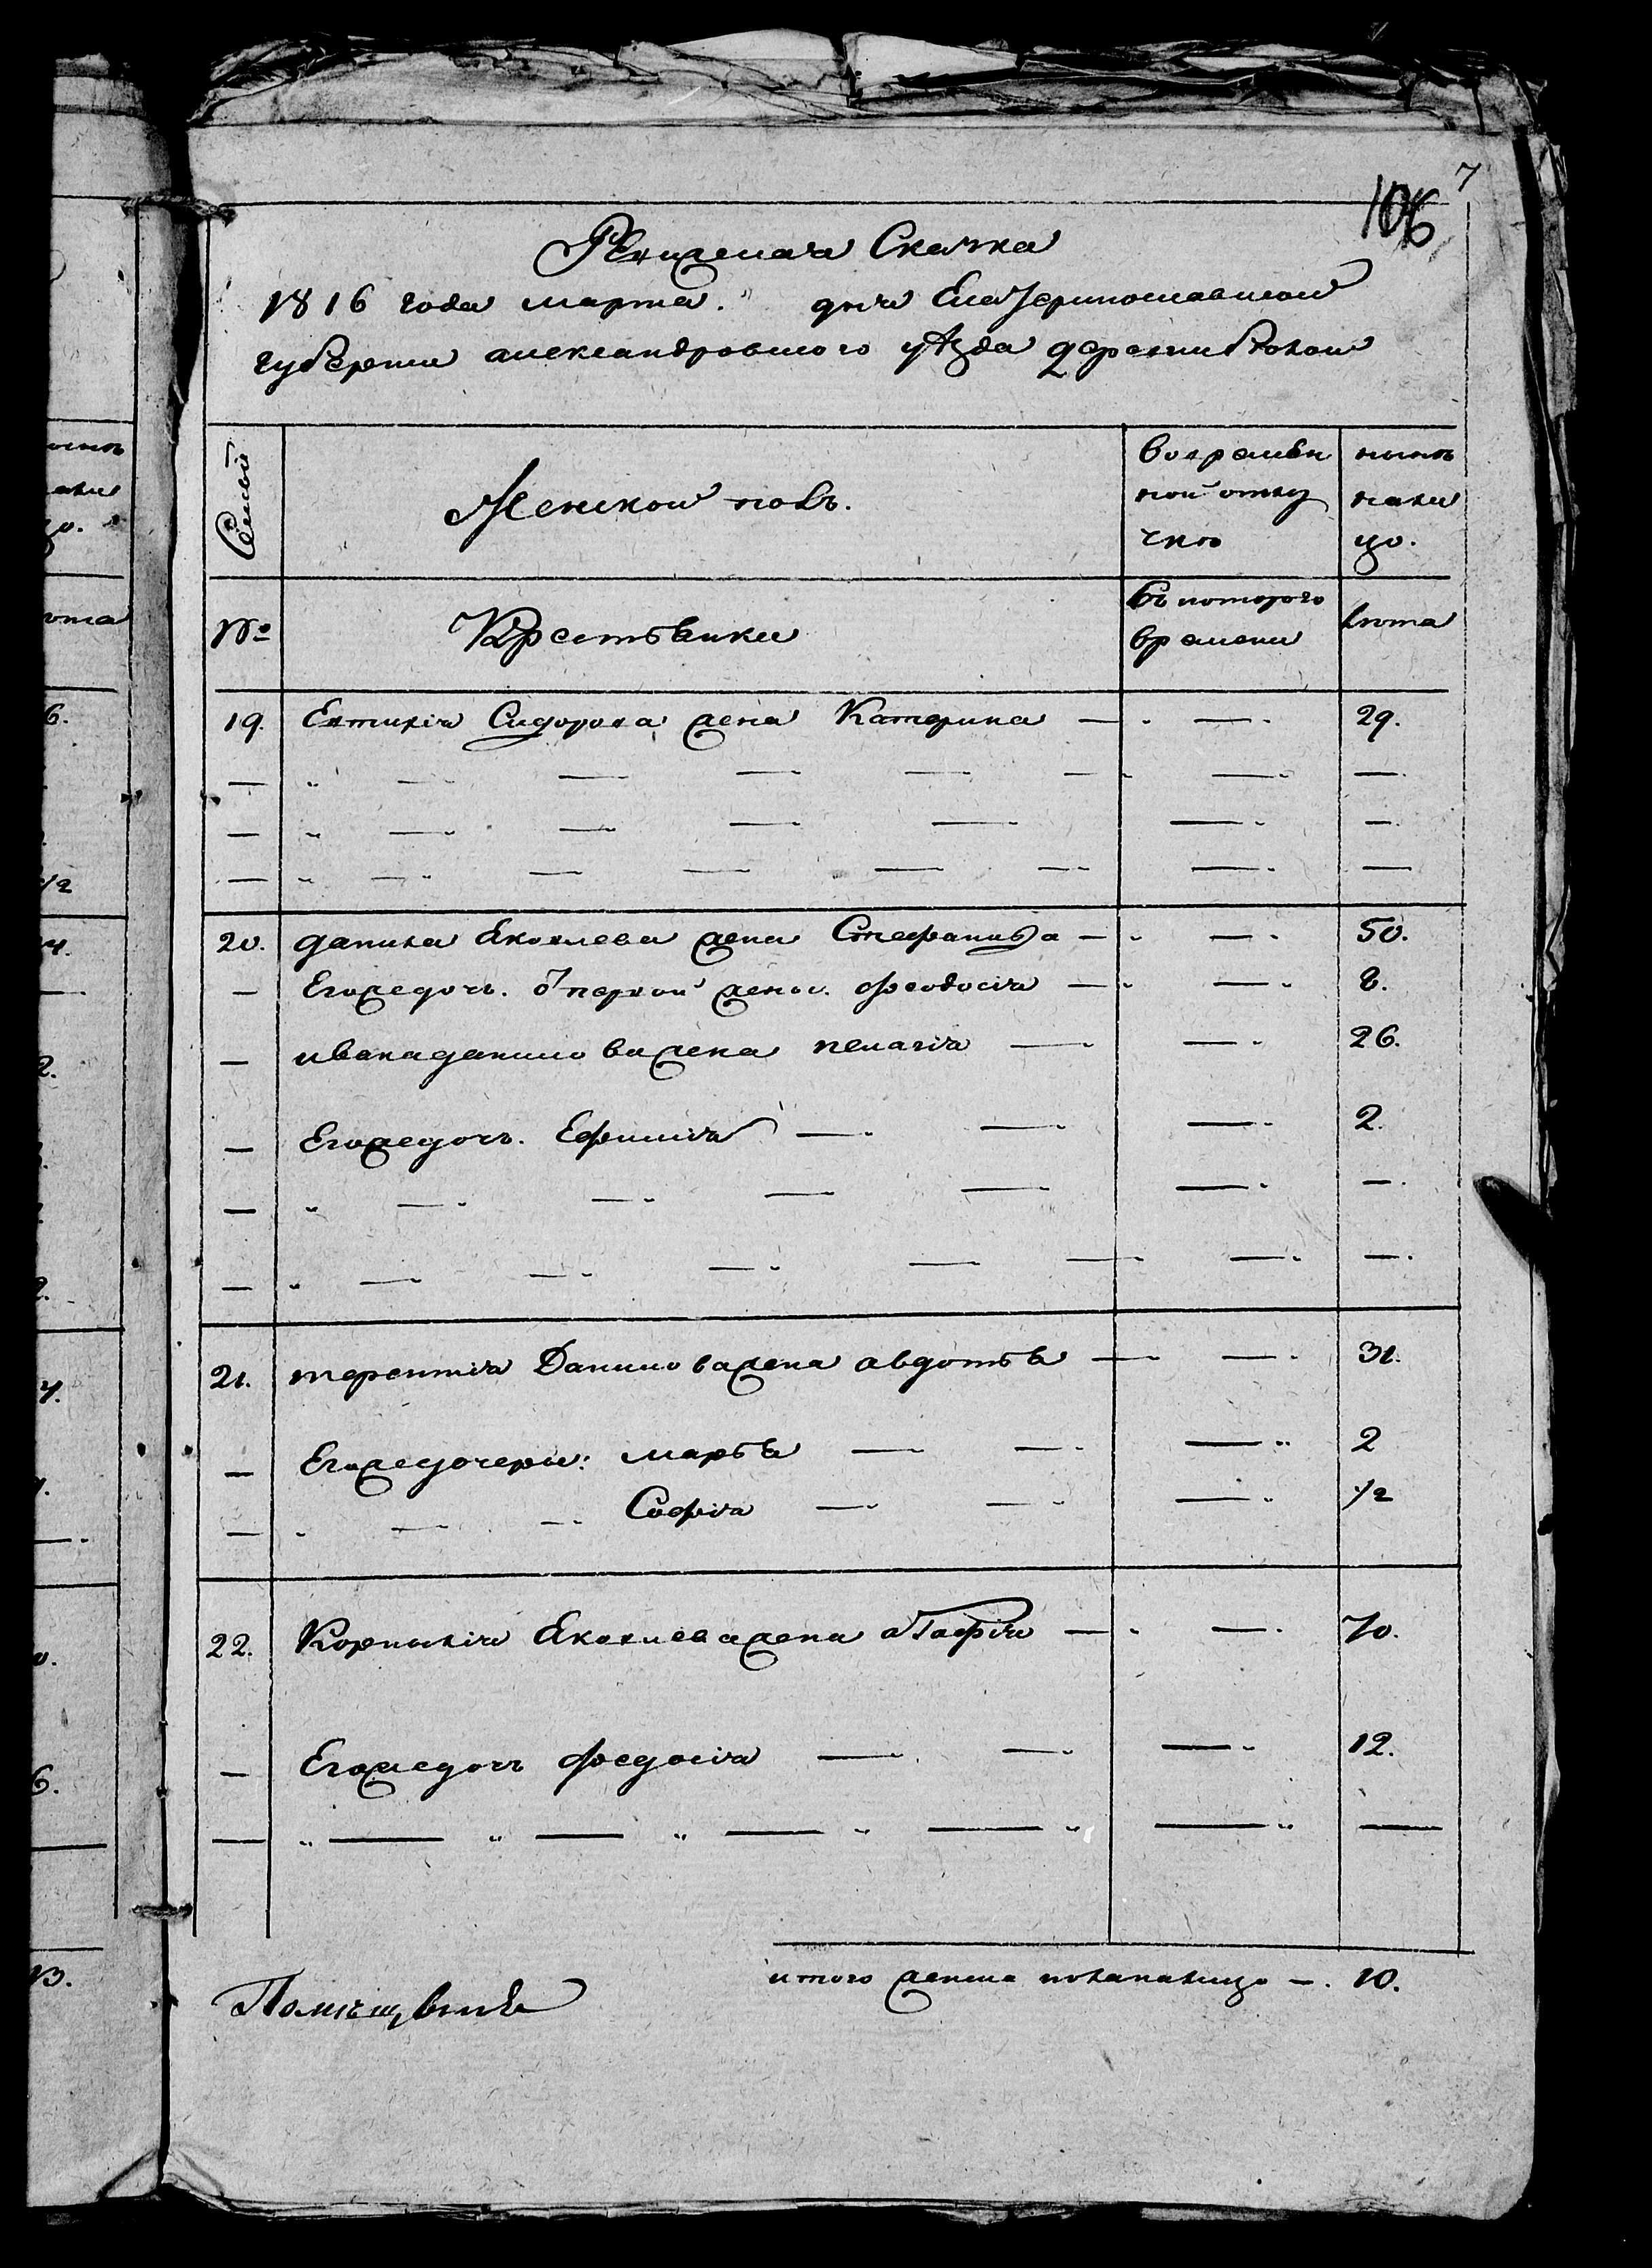 7
106
Ревижская Скаска
1816 года марта. " дня Екатеринославской
губернии александровского уѣзда деревни Бѣлой
Семьи
Женской полъ.
Во времен
ной отлу
чкѣ
нынѣ
нали
цо.
№
Крестьянки
Съ которого
времени
лѣта
19. Евтихія Сидорова жена Катерина — 29.
20. данила Яковлева жена Стефанида — 50.
— Егожедочь. от первой жены. феодосія — 8.
— ивана данилова жена пелагія — 26.
— Егожедочь. Ефимія — 2.
21. терентия Данилова жена авдотья — 31.
— Егожедочери: марья — 2
— Софія — 1/2
22. Корнилія Яковлева жена агафія — 70.
— Егожедочь федосія — 12.
итого женска пола налицо — 10.